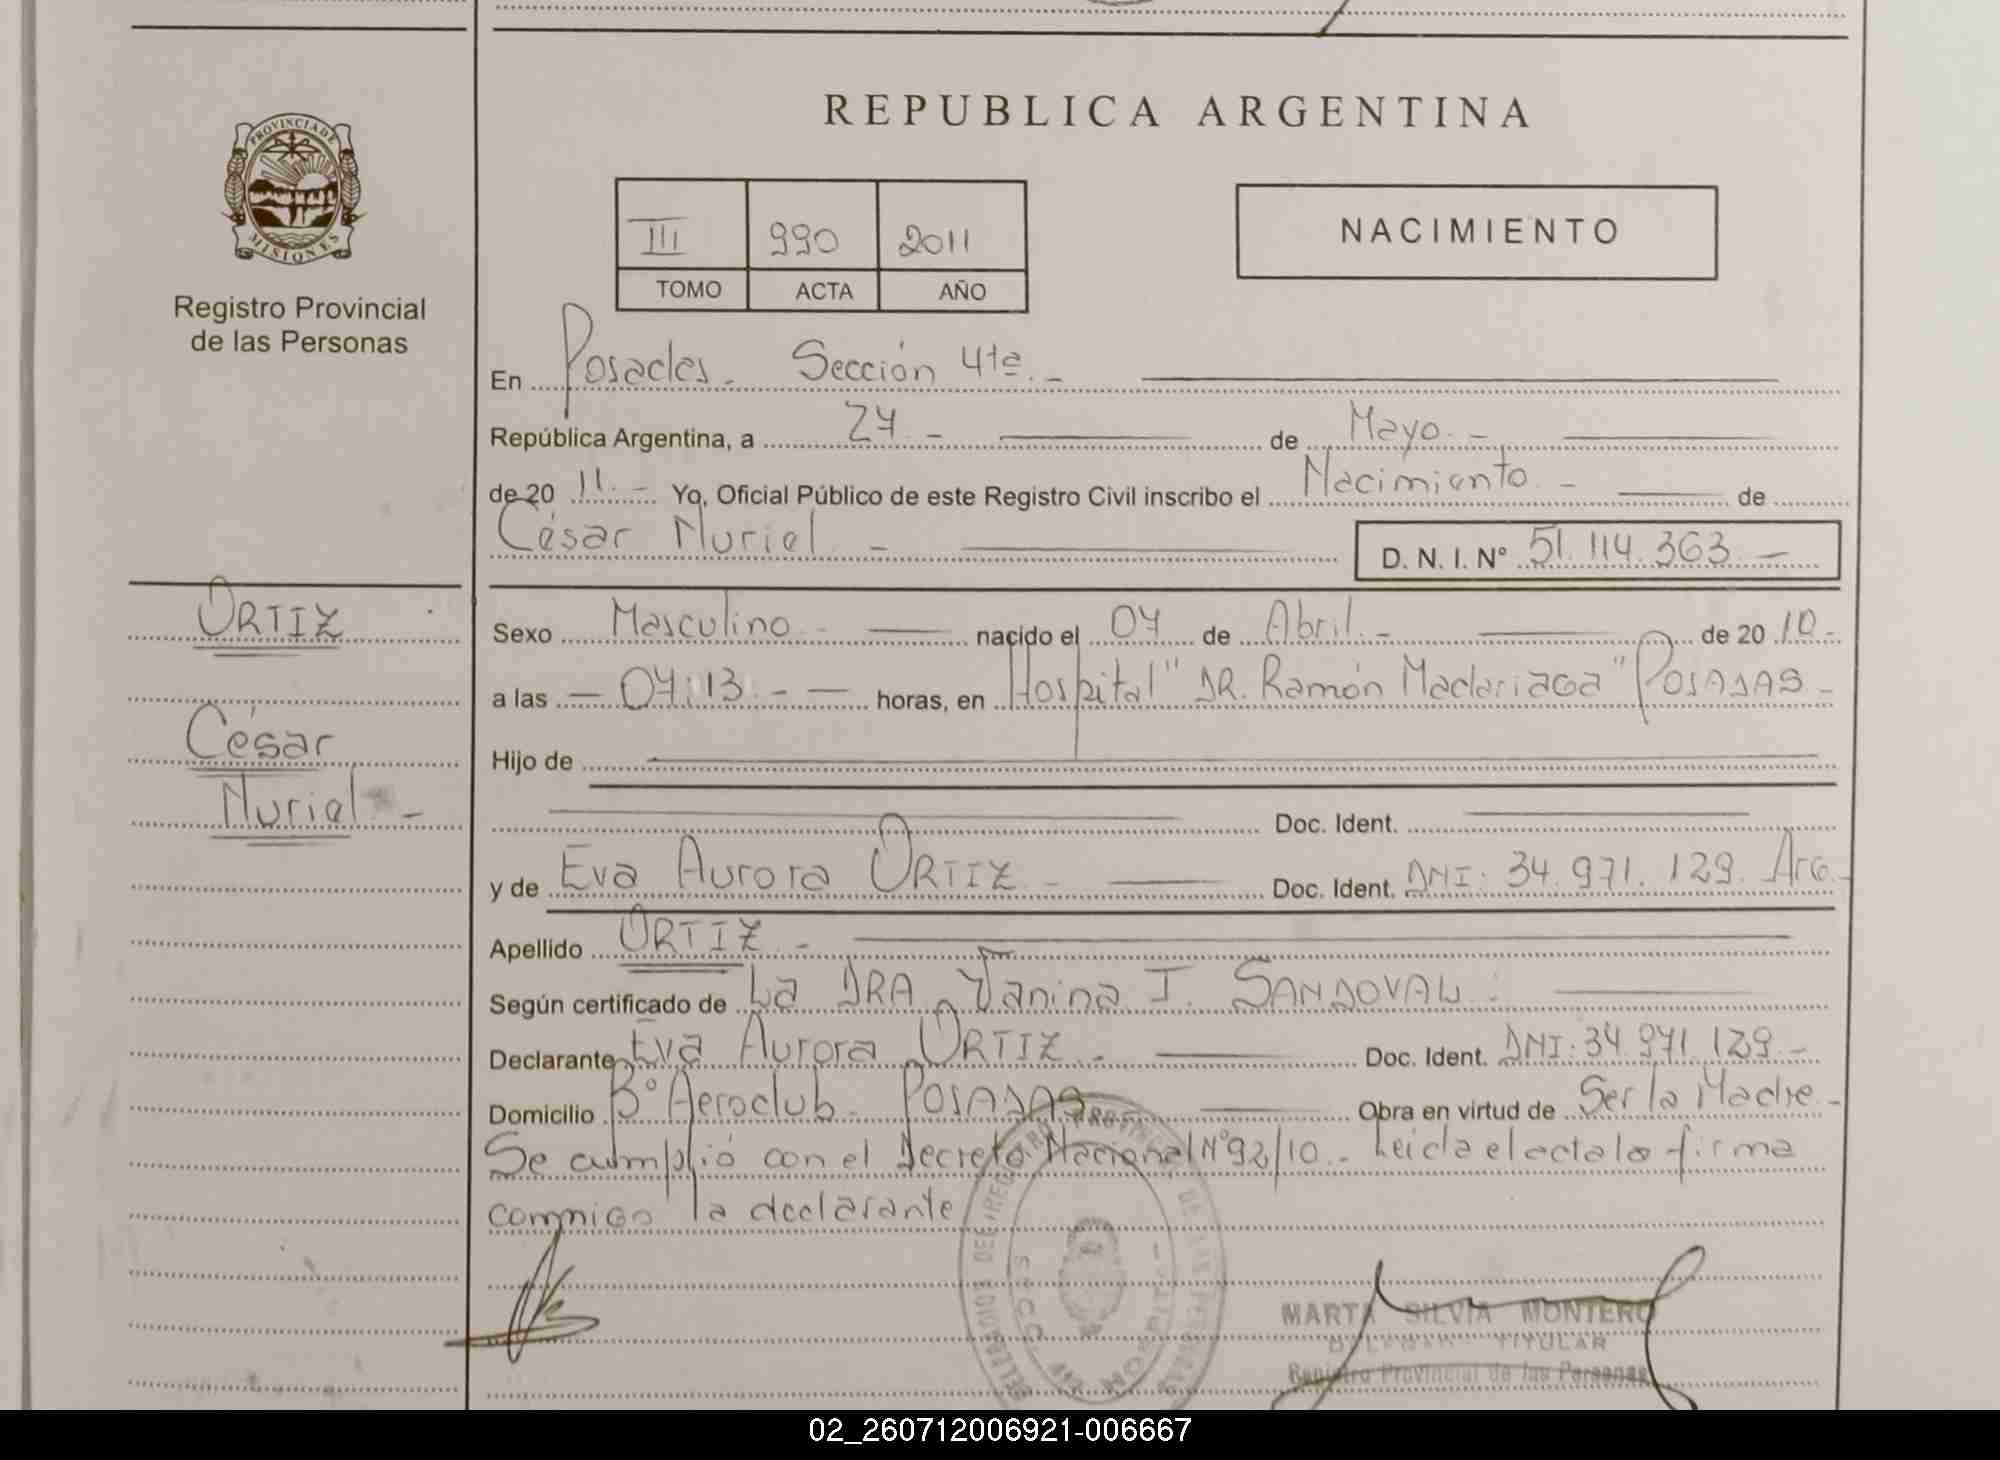 REPUBLICA ARGENTINA
PROVINCIA DE MISIONES
Registro Provincial
de las Personas
III 990 2011
TOMO ACTA AÑO
NACIMIENTO
En Posadas. Sección 4ta.-
República Argentina, a 27.- de Mayo.-
de 20 11.- Yo, Oficial Público de este Registro Civil inscribo el Nacimiento.- de
César Muriel - D. N. I. N° 51.114.363.-
ORTIZ
César
Muriel.-
Sexo Masculino.- nacido el 07 de Abril.- de 20 10.-
a las - 07:13.- - horas, en Hospital "DR. Ramón Madariaga" POSADAS-
Hijo de
Doc. Ident.
y de Eva Aurora ORTIZ.- Doc. Ident. DNI: 34.971.129. Arg.-
Apellido ORTIZ.-
Según certificado de La DRA. Vanina I. SANDOVAL.
Declarante Eva Aurora ORTIZ.- Doc. Ident. DNI: 34.971.129.-
Domicilio B° Aeroclub. POSADAS Obra en virtud de Ser la Madre.-
Se cumplió con el Decreto Nacional N°92/10.- Leida el acta la firma
conmigo la declarante
MARTA SILVIA MONTERO
TITULAR
Registro Provincial de las Personas
02_260712006921-006667